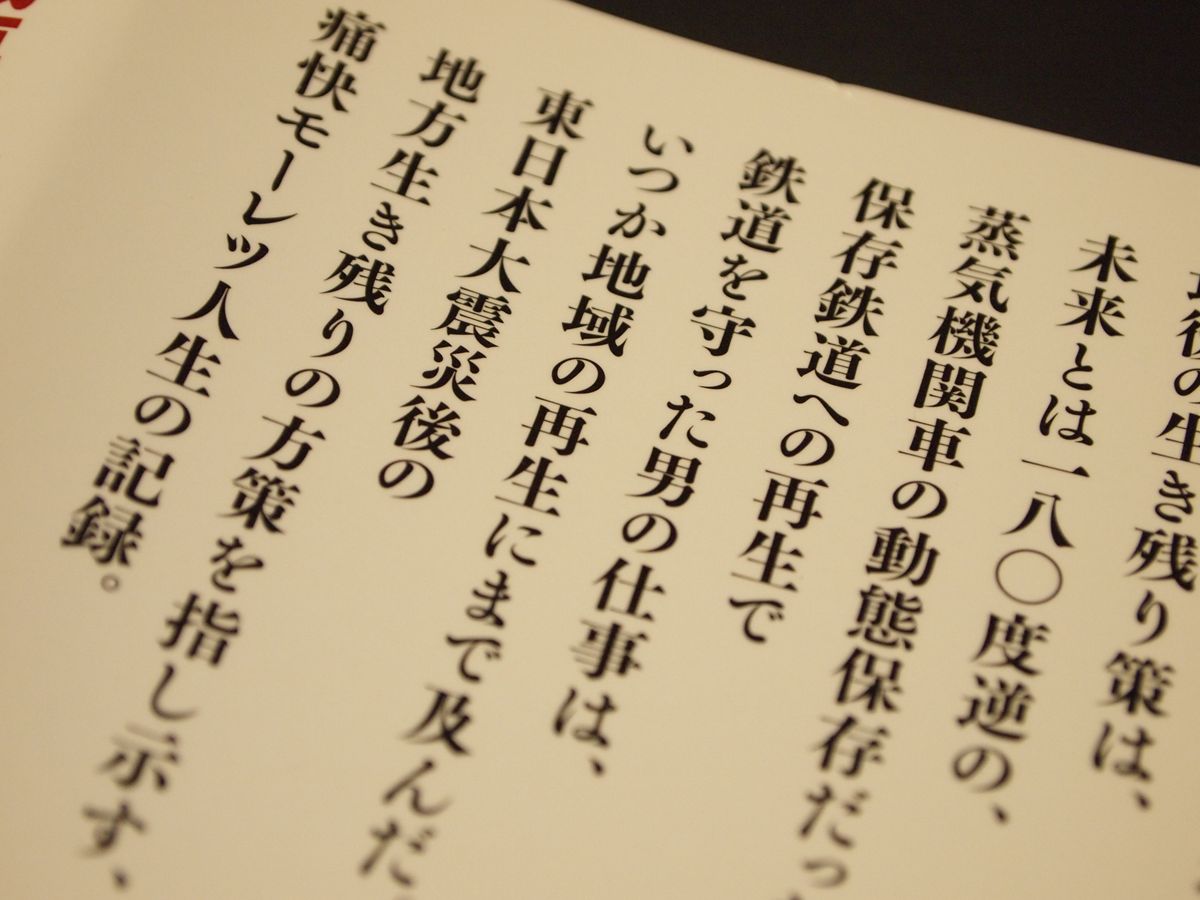 後の生き残り策は、
未来とは一八〇度逆の、
蒸気機関車の動態保存だっ
保存鉄道への再生で
鉄道を守った男の仕事は、
いつか地域の再生にまで及んだ
東日本大震災後の
地方生き残りの方策を指し示す、
痛快モーレツ人生の記録。